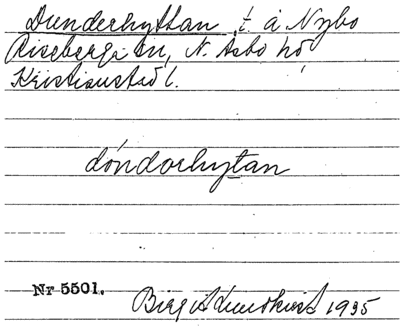 Dunderhyttan t. å Nybo
Riseberga sn, N. Åsbo hd
Kristianstad l.
dóndorhytan
Nr 5501.
Birgit Lundkvist 1935